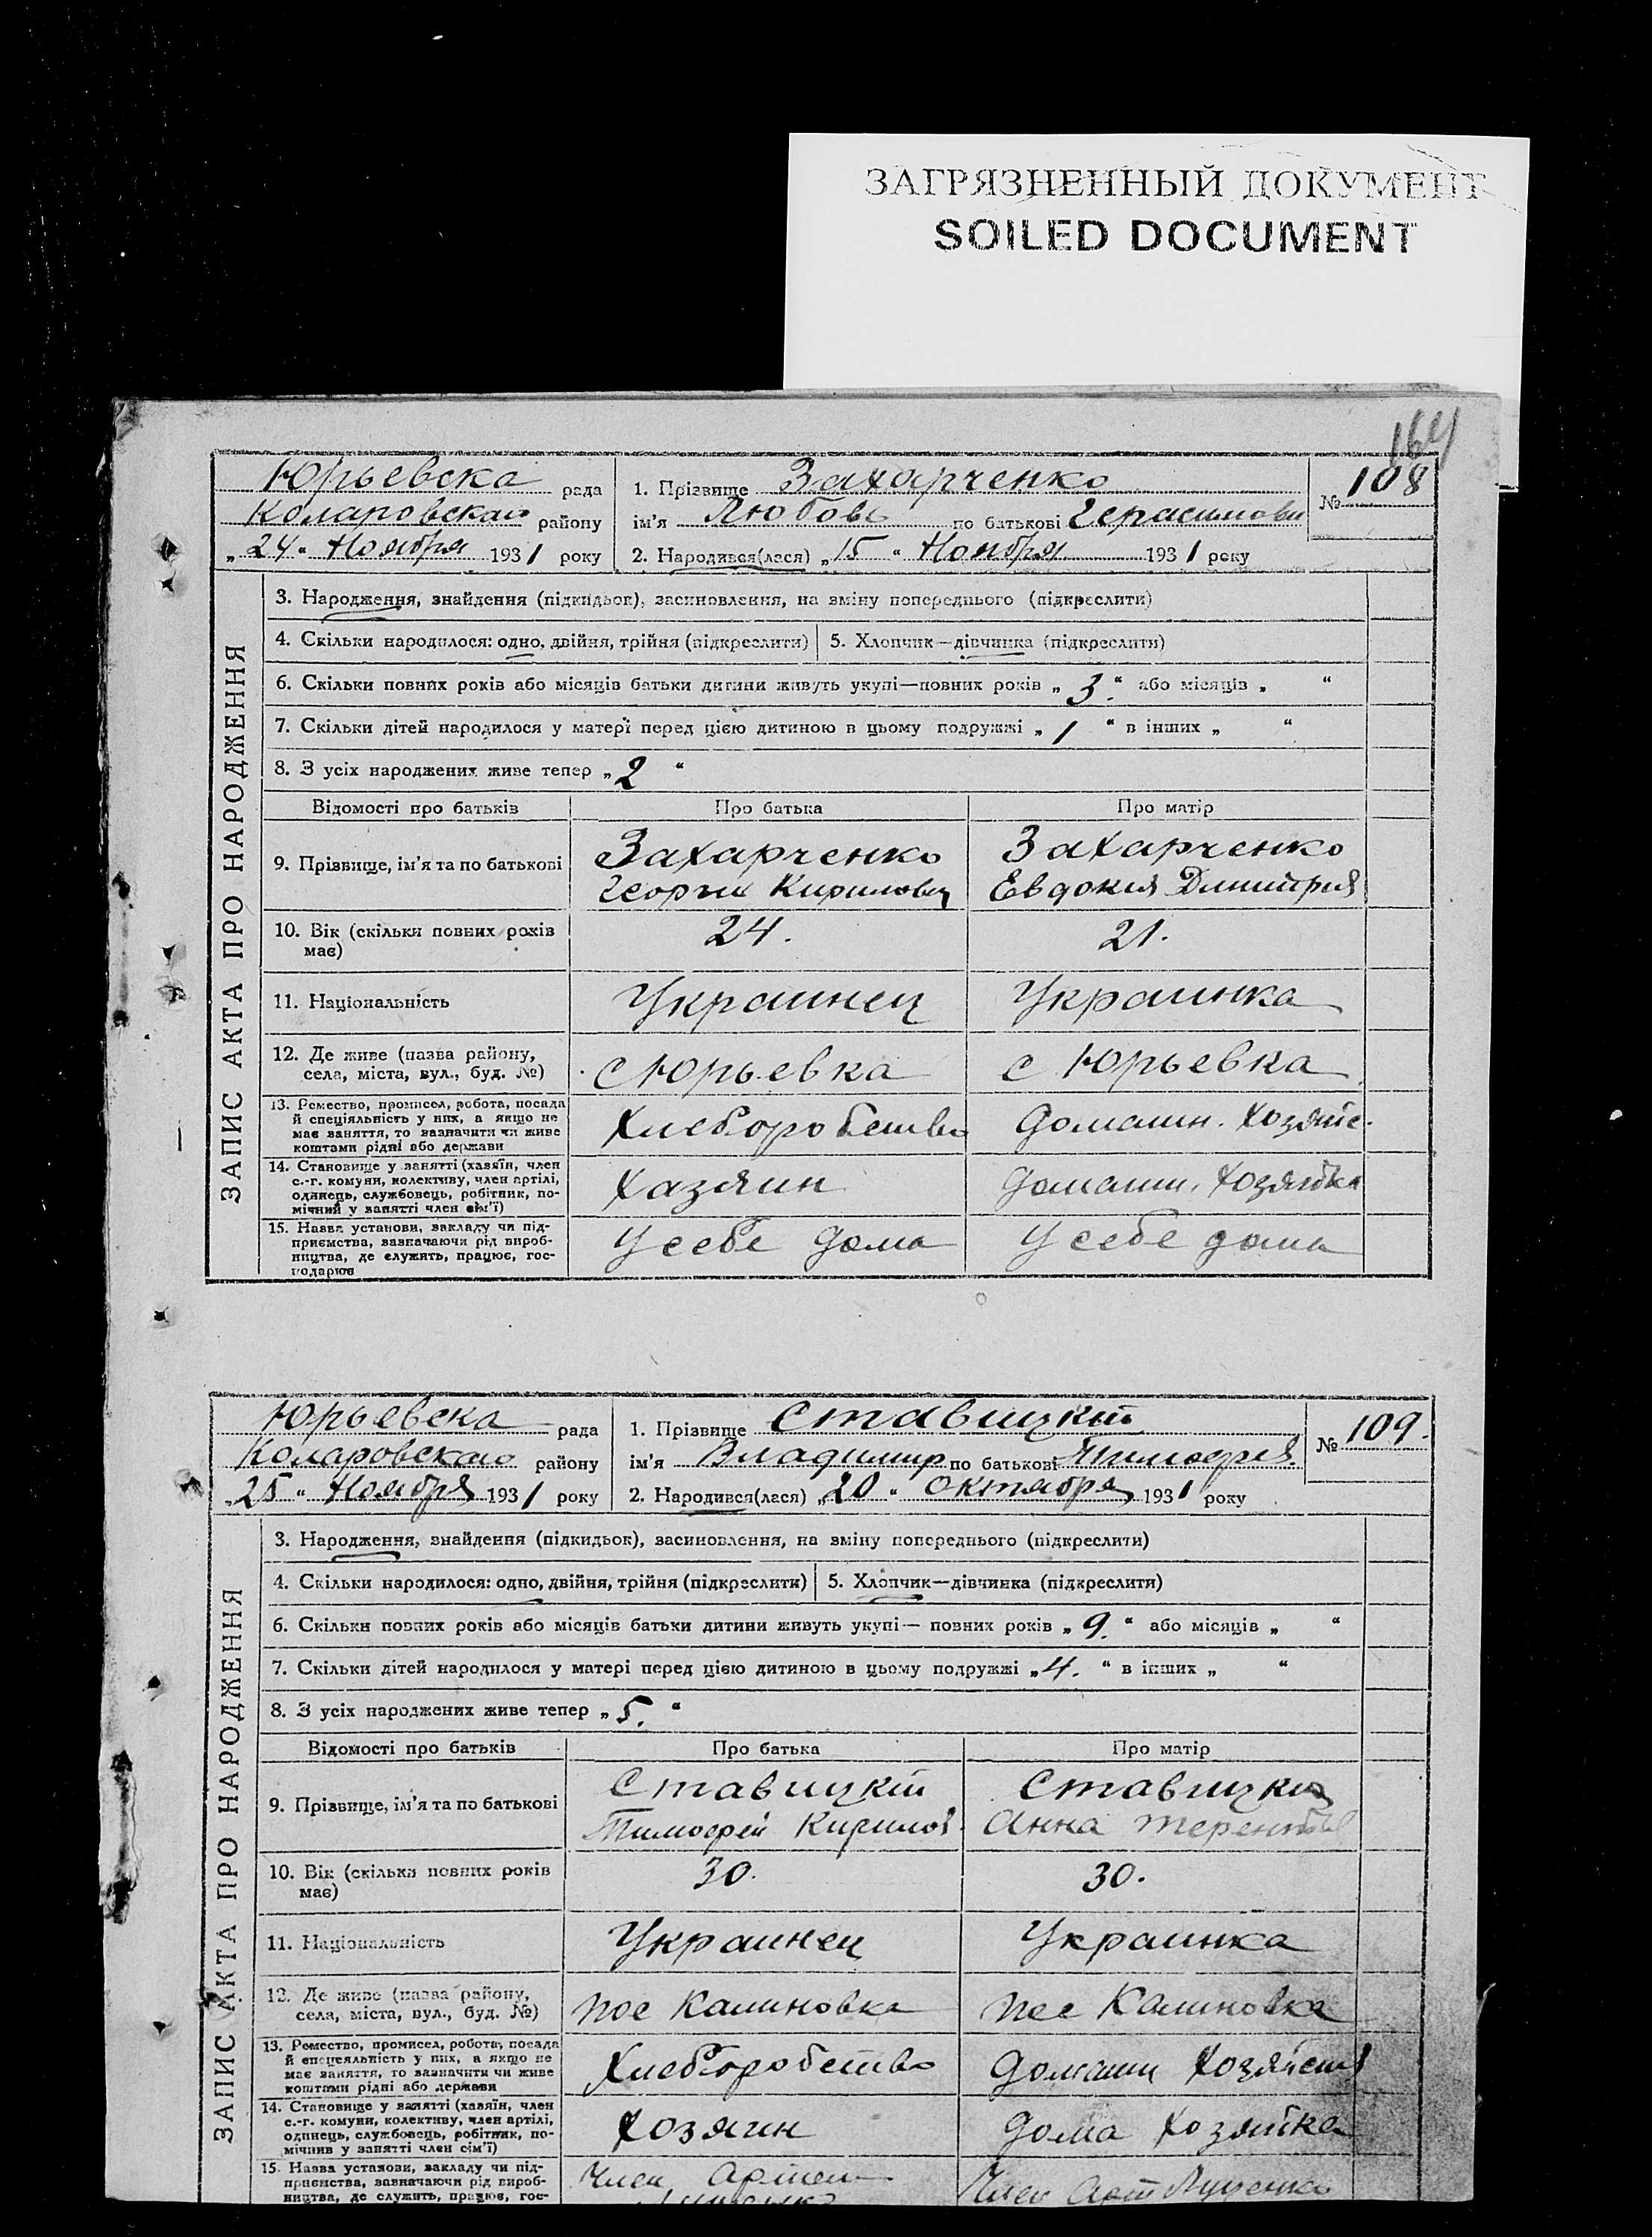 ЗАГРЯЗНЕННЫЙ ДОКУМЕНТ
SOILED DOCUMENT
164
Юрьевска рада
Коларовскаго району
„24“ Ноября 1931 року
1. Прізвище Захарченко
ім'я Любовь по батькові Герасимовн
2. Народився(лася) „15“ Ноября 1931 року
№ 108
ЗАПИС АКТА ПРО НАРОДЖЕННЯ
3. Народження, знайдення (підкидьок), засиновлення, на зміну попереднього (підкреслити)
4. Скільки народилося: одно, двійня, трійня (підкреслити) 5. Хлопчик—дівчинка (підкреслити)
6. Скільки повних років або місяців батьки дитини живуть укупі—повних років „3.“ або місяців „ “
7. Скільки дітей народилося у матері перед цією дитиною в цьому подружжі „1“ в інших „ “
8. З усіх народжених живе тепер „2“
Відомості про батьків Про батька Про матір
9. Прізвище, ім'я та по батькові
Захарченко
Георги Кирилович
Захарченко
Евдокия Дмитрия
10. Вік (скільки повних років
має)
24. 21.
11. Національність Украинец Украинка
12. Де живе (назва району,
села, міста, вул., буд. №)
с Юрьевка с Юрьевка
13. Ремество, промисел, робота, посада
й спеціяльність у них, а якщо не
має заняття, то зазначити чи живе
коштами рідні або держави
Хлеборобство Домашн. Хозяйс.
14. Становище у занятті (хазяїн, член
с.-г. комуни, колективу, член артілі,
одинець, службовець, робітник, по-
мічний у занятті член сім'ї)
Хазяин Домашн. Хозяйка
15. Назва установи, закладу чи під-
приємства, зазначаючи рід вироб-
ництва, де служить, працює, гос-
подарює
У себе дома У себе дома
Юрьевска рада
Коларовскаго району
„25“ Ноября 1931 року
1. Прізвище Ставицкий
ім'я Владимир по батькові Тимофея
2. Народився(лася) „20“ Октября 1931 року
№ 109.
ЗАПИС АКТА ПРО НАРОДЖЕННЯ
3. Народження, знайдення (підкидьок), засиновлення, на зміну попереднього (підкреслити)
4. Скільки народилося: одно, двійня, трійня (підкреслити) 5. Хлопчик—дівчинка (підкреслити)
6. Скільки повних років або місяців батьки дитини живуть укупі— повних років „9.“ або місяців „ “
7. Скільки дітей народилося у матері перед цією дитиною в цьому подружжі „4.“ в інших „ “
8. З усіх народжених живе тепер „5.“
Відомості про батьків Про батька Про матір
9. Прізвище, ім'я та по батькові
Ставицкий
Тимофей Кирилов.
Ставицкая
Анна
10. Вік (скільки повних років
має)
30. 30.
11. Національність Украинец Украинка
12. Де живе (назва району,
села, міста, вул., буд. №)
пос Калиновка пос Калиновка
13. Ремество, промисел, робота, посада
й спеціяльність у них, а якщо не
має заняття, то зазначити чи живе
коштами рідні або держави
Хлеборобство Домашн Хозяйств
14. Становище у занятті (хазяїн, член
с.-г. комуни, колективу, член артілі,
одинець, службовець, робітник, по-
мічний у занятті член сім'ї)
Хозяин Дома Хозяйка
15. Назва установи, закладу чи під-
приємства, зазначаючи рід вироб-
ництва, де служить, працює, гос-
Член Артели
Член Арт Луценка